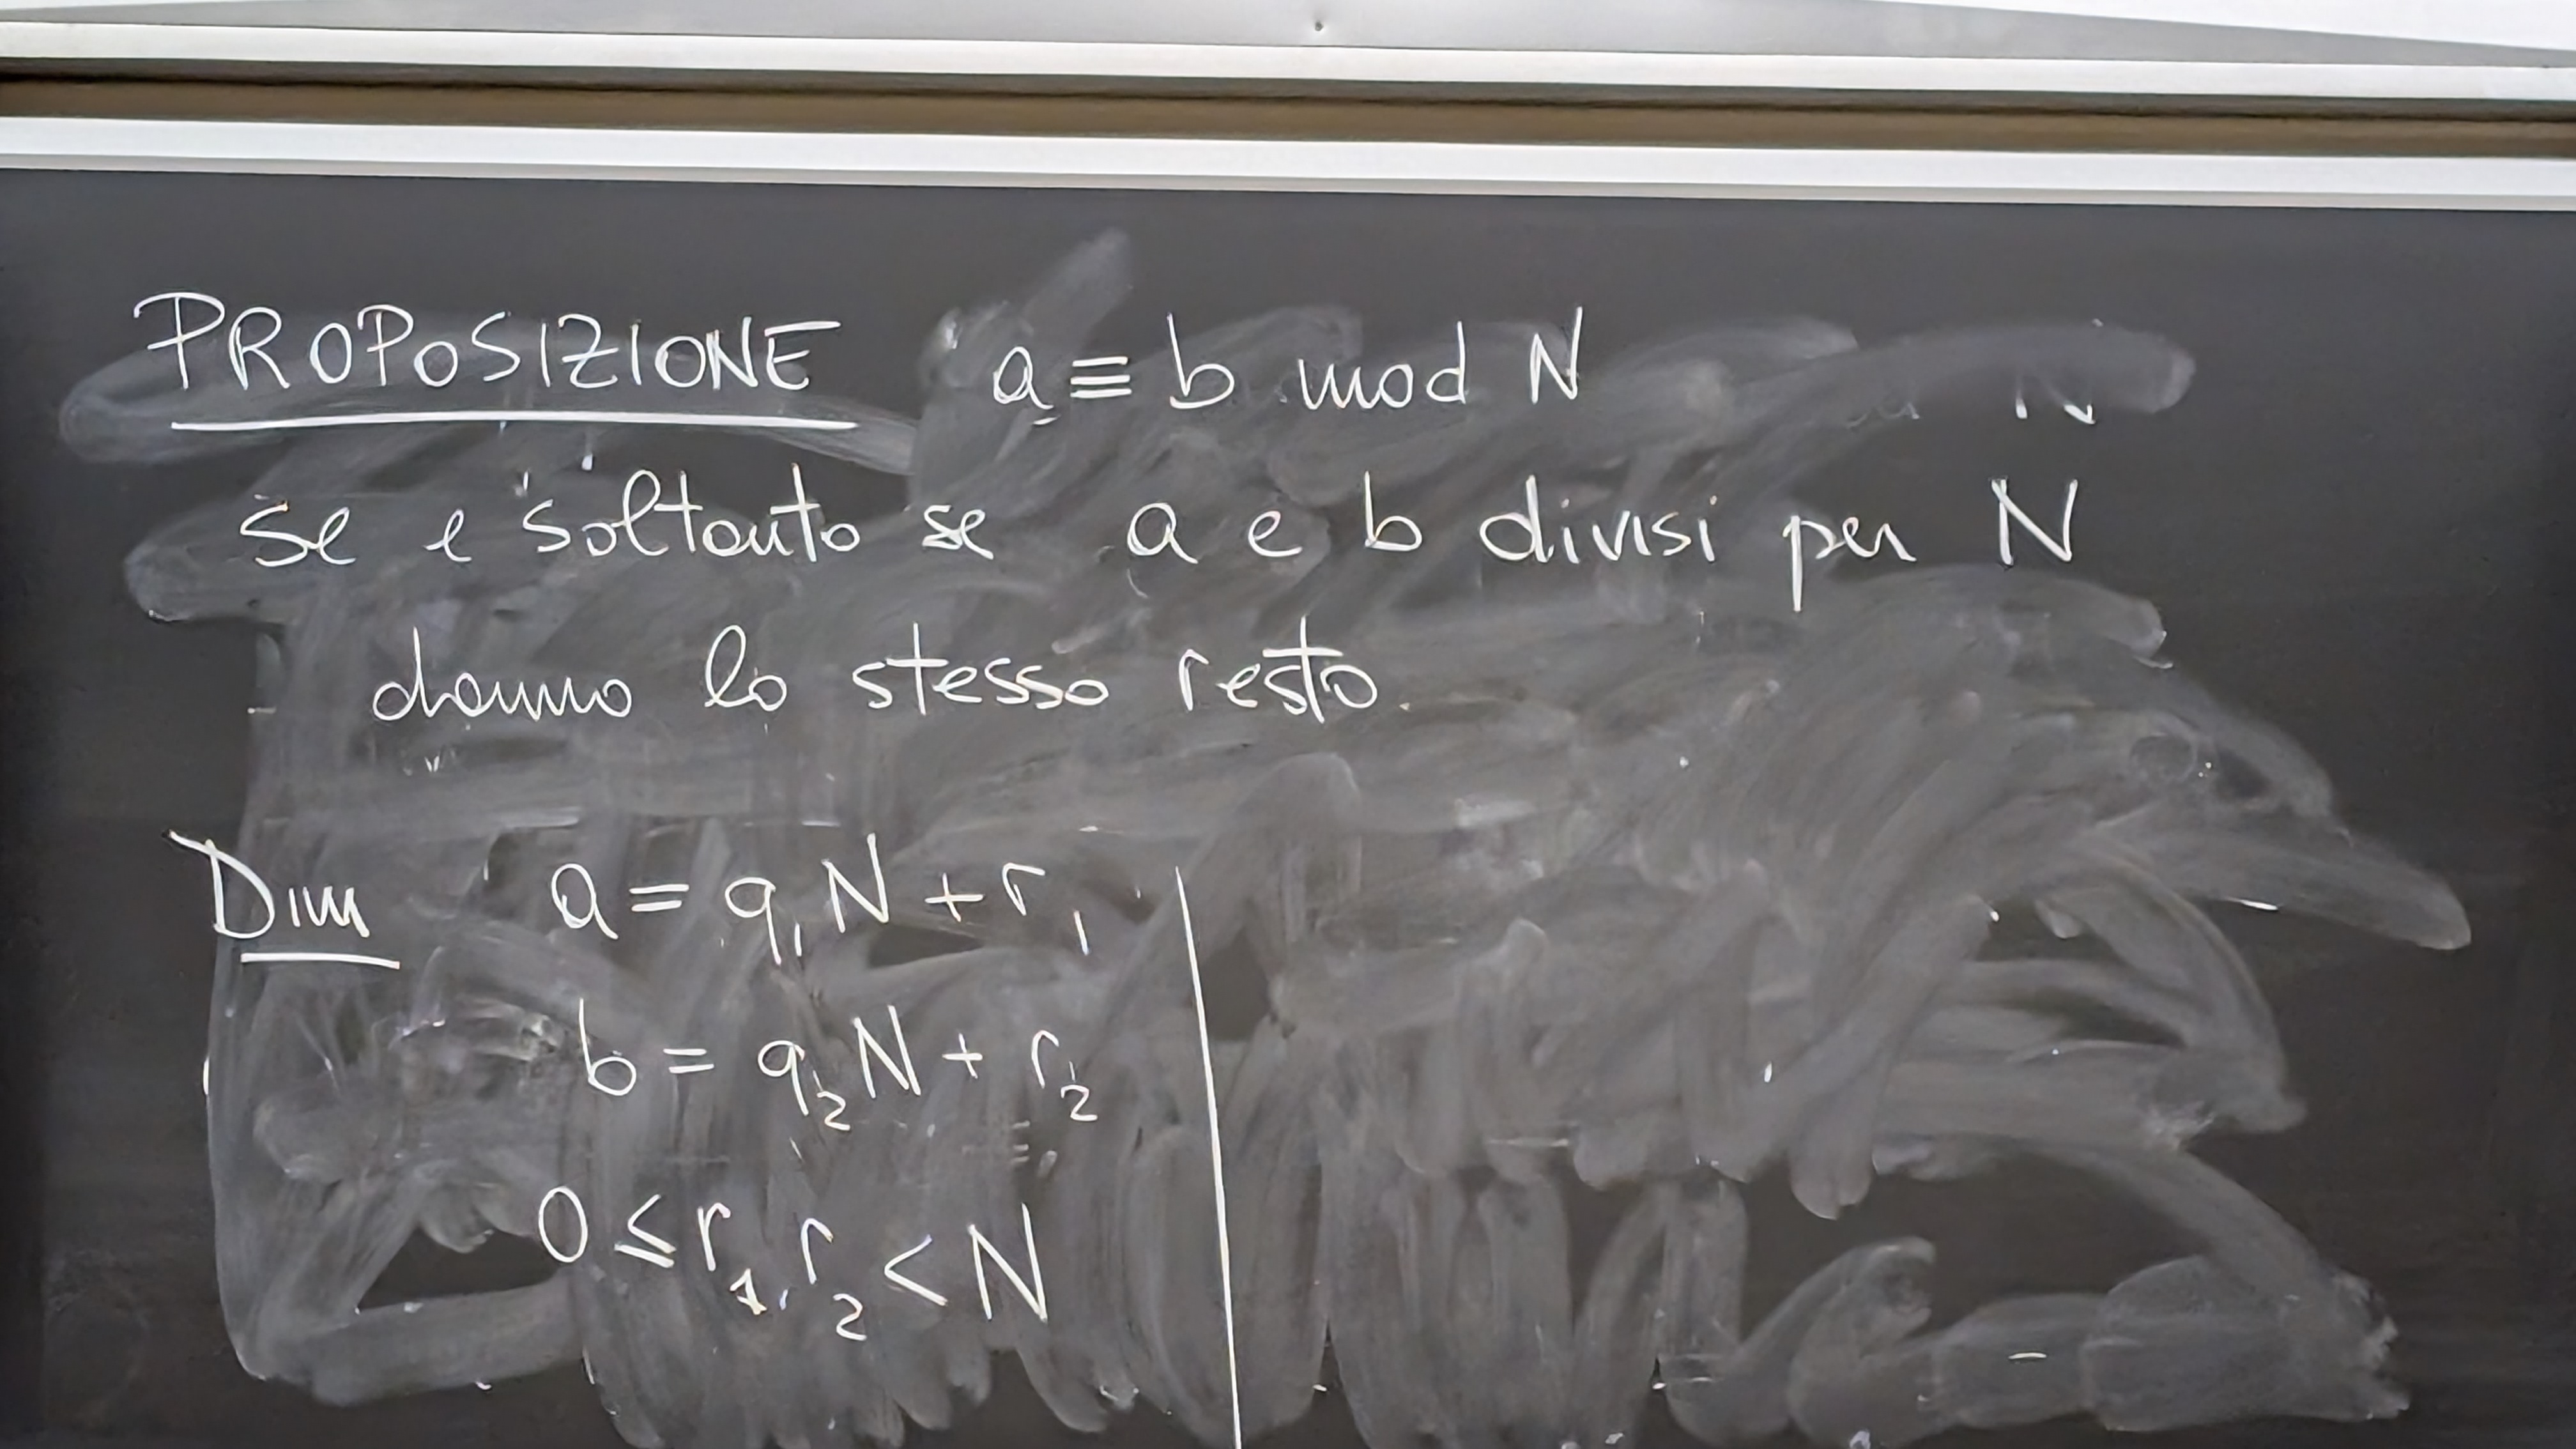 PROPOSIZIONE a ≡ b mod N
se e soltanto se a e b divisi per N
danno lo stesso resto.
Dim a = q₁N + r₁
b = q₂N + r₂
0 ≤ r₁, r₂ < N